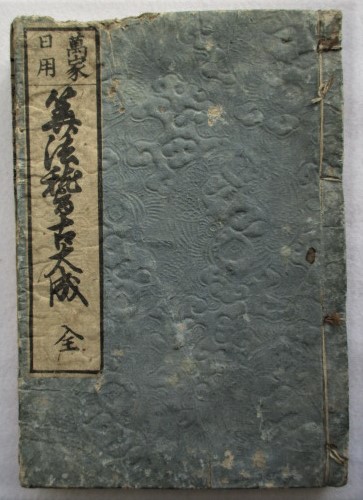 萬家
日用
算法稽古大成
全